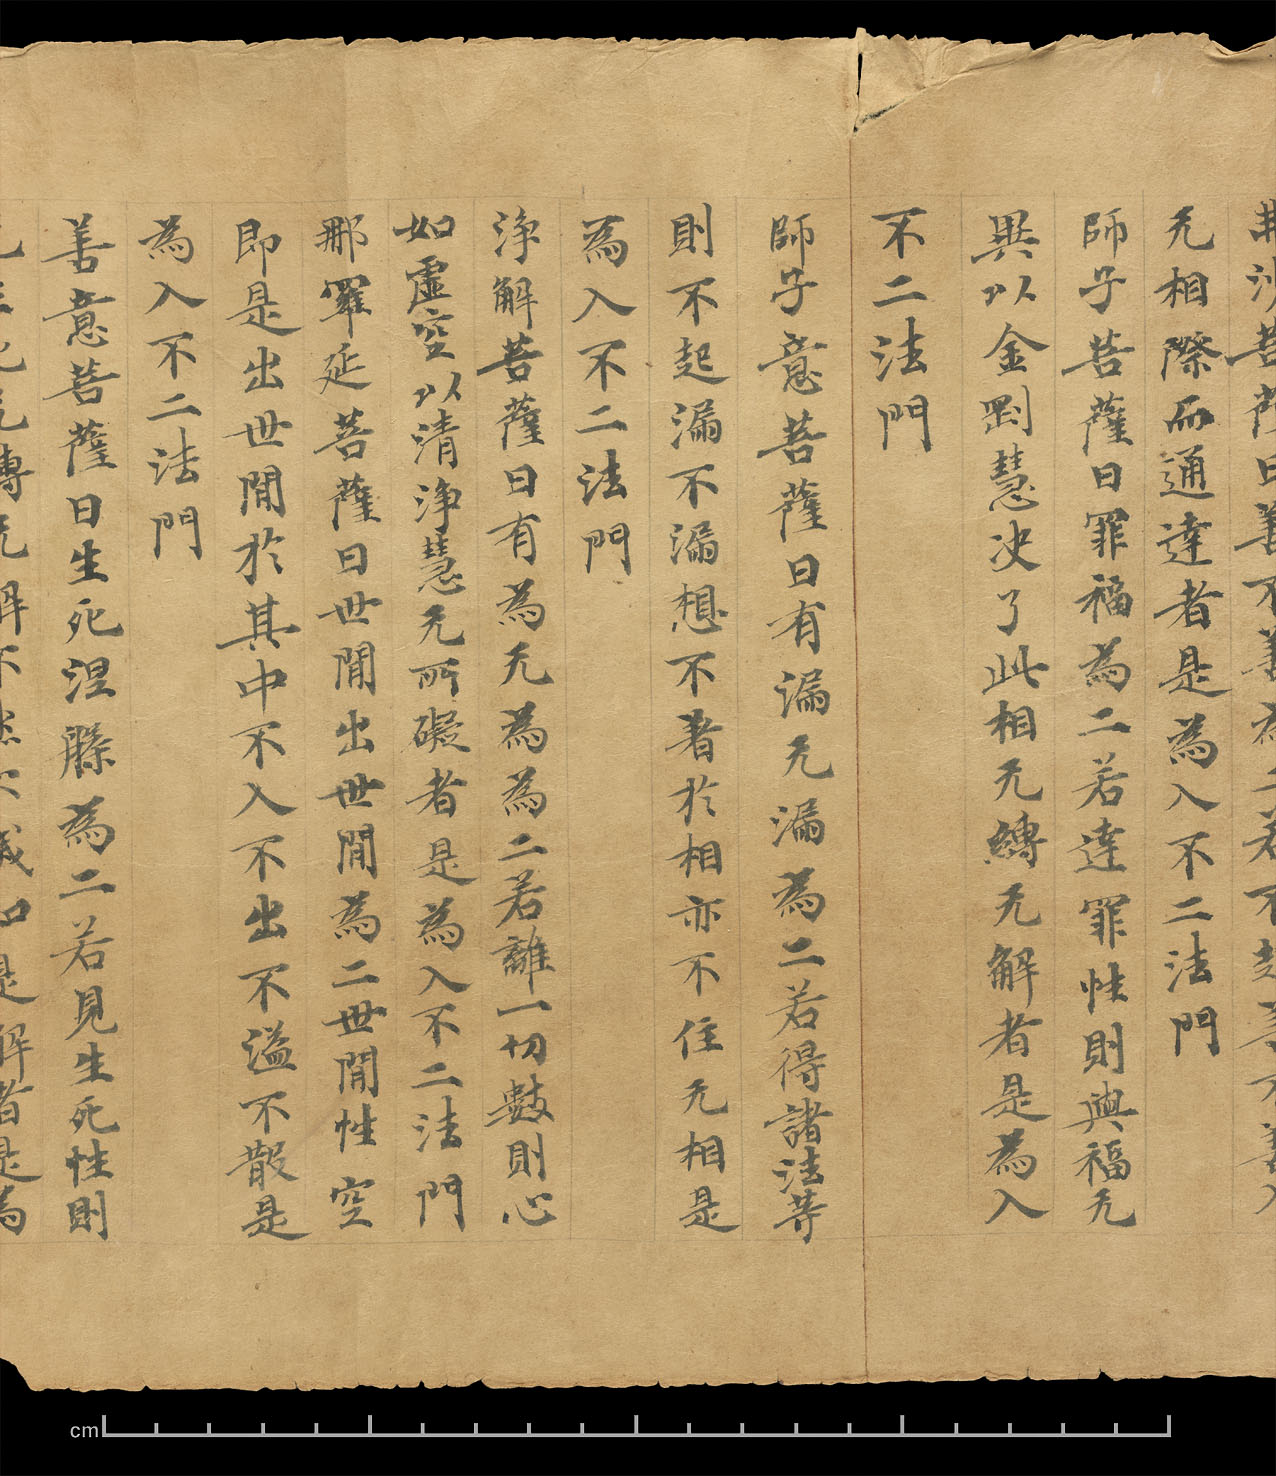 沙菩薩曰善不善為二若不起善不善入
无相際而通達者是為入不二法門
師子菩薩曰罪福為二若達罪性則與福无
異以金剛慧决了此相无縛无解者是為入
不二法門
師子意菩薩曰有漏无漏為二若得諸法等
則不起漏不漏想不著於相亦不住无相是
為入不二法門
淨解菩薩曰有為无為為二若離一切數則心
如虛空以清淨慧无所礙者是為入不二法門
那羅延菩薩曰世間出世間為二世間性空
即是出世間於其中不入不出不溢不散是
為入不二法門
善意菩薩曰生死涅槃為二若見生死性則
无生死无縛无解不然不滅如是解者是為
cm